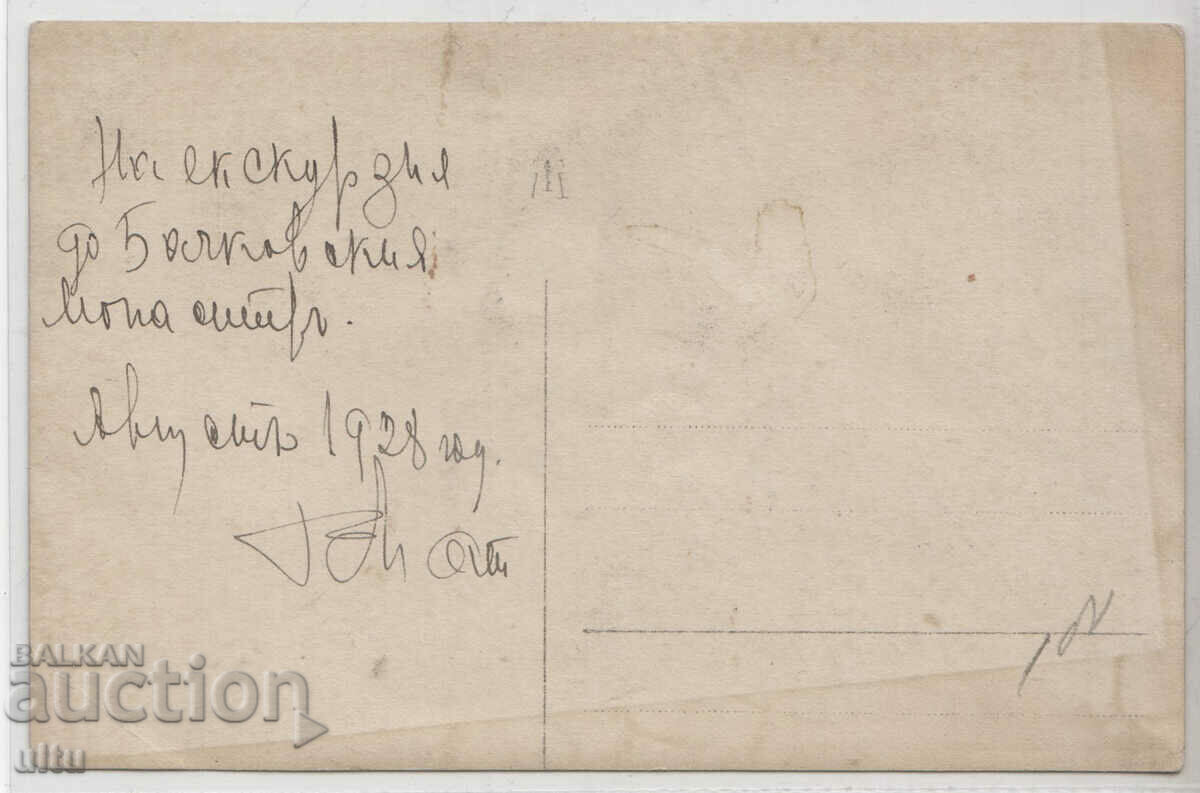 На екскурзия
до Бачковския
Монастиръ.
Августъ 1928 год.
BALKAN
auction
ultu